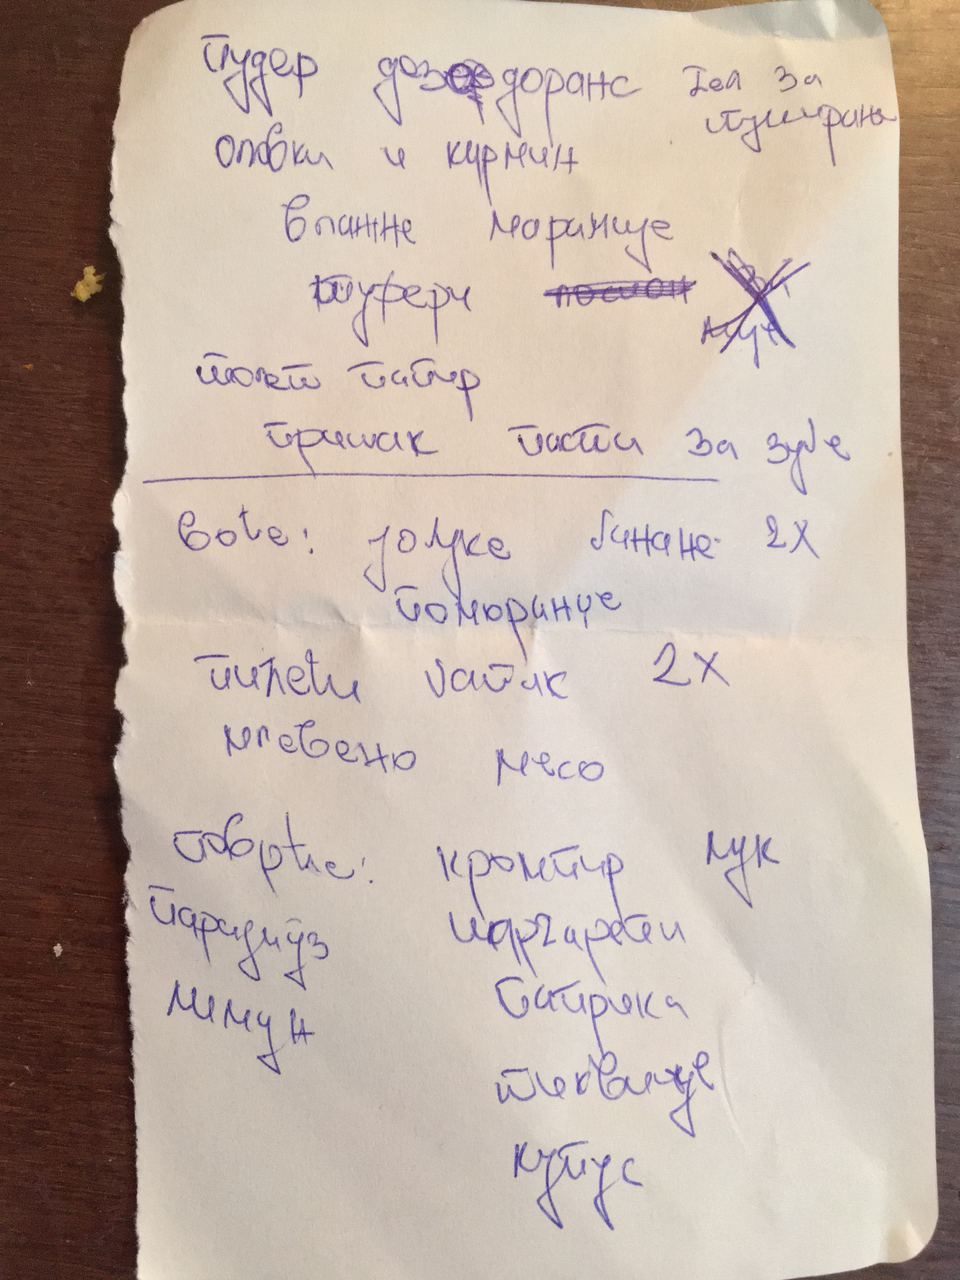 Пудер дезодоранс Гел за
туширање
оловка и кармин
влажне марамице
туфери
тоалет папир
прашак паста за зубе
воће: јабуке банане 2X
поморанџе
пилећи батак 2X
млевено месо
поврће: кромпир лук
парадајз шаргарепа
лимун паприка
тиквице
купус